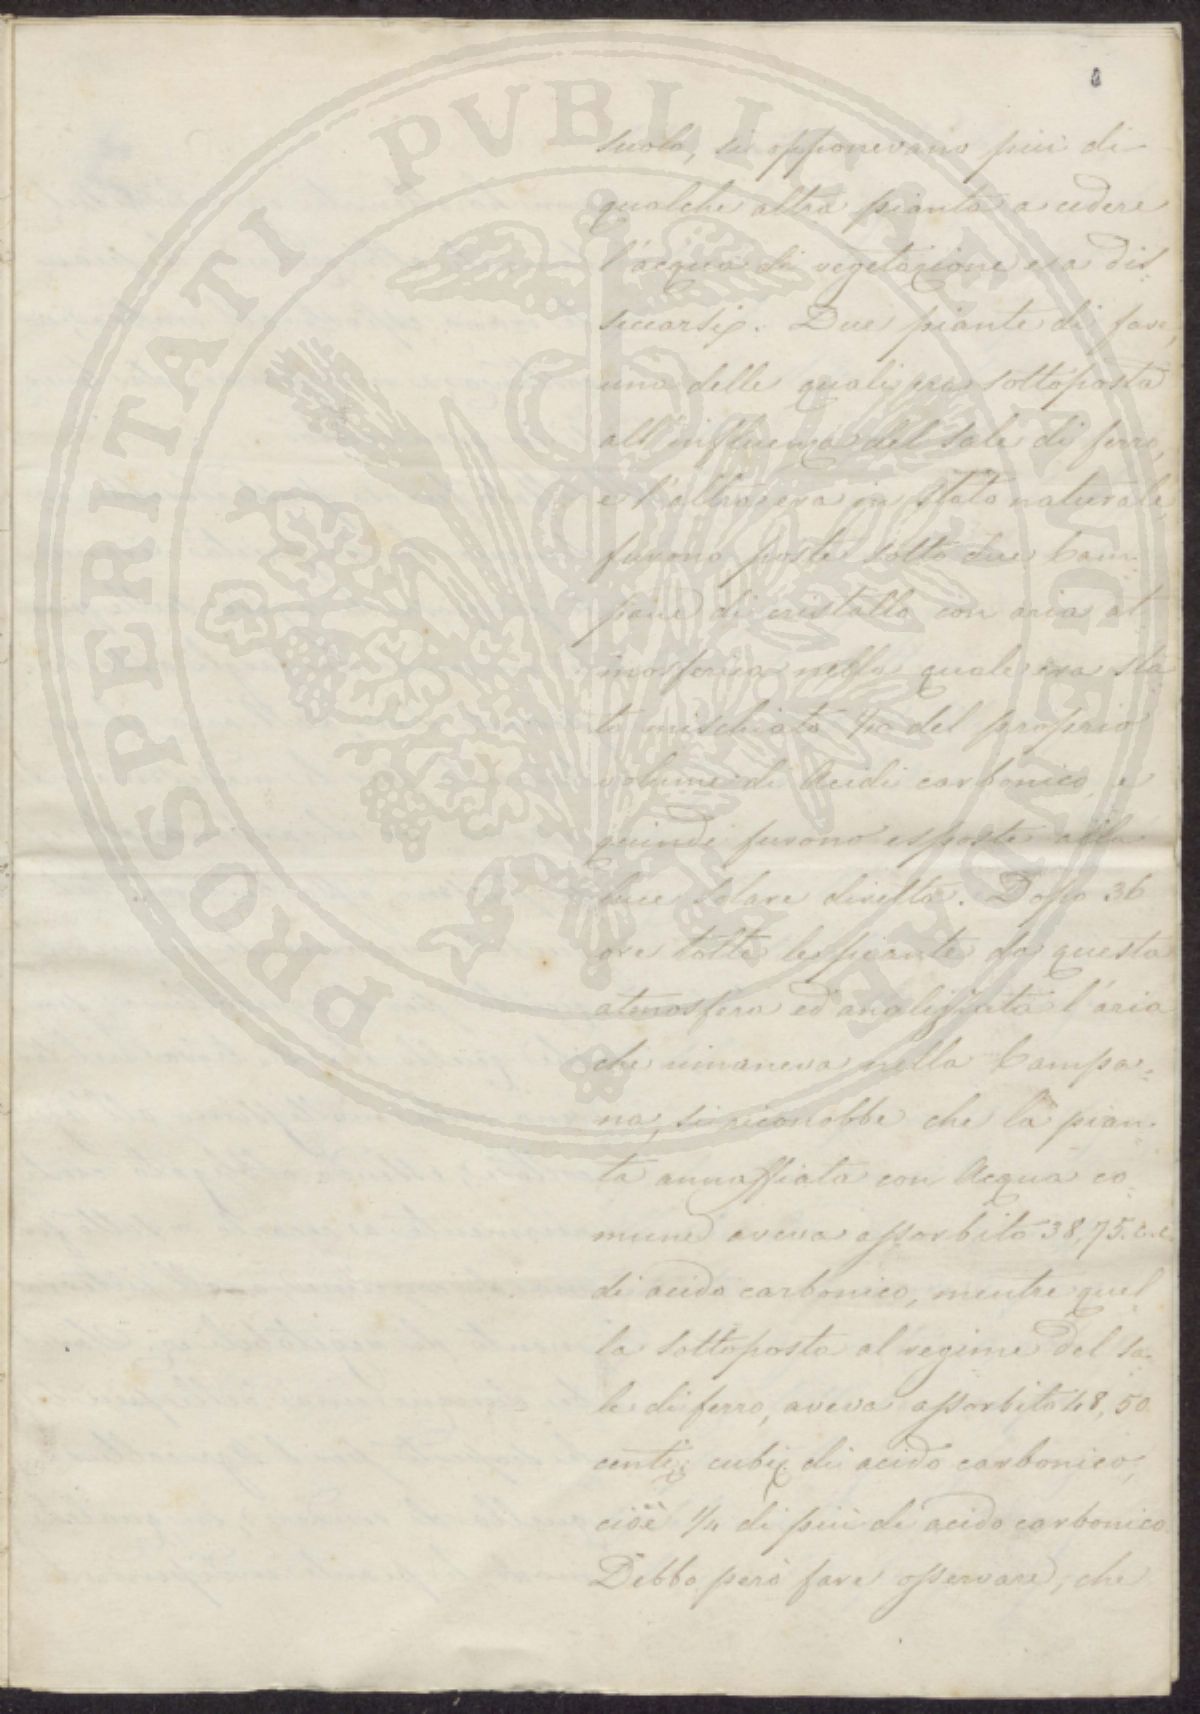 PROSPERITATI PVBLICAE AVGENDAE
suolo, si opponevano più di
qualche altra pianta a cedere
l'acqua di vegetazione e a dis-
seccarsi. Due piante di fave,
una delle quali era sottoposta
all'influenza del sale di ferro,
e l'altra era in stato naturale,
furono poste sotto due Cam-
pane di cristallo con aria at-
mosferica nella quale era sta
to mischiato 1/10 del proprio
volume di Acido carbonico, e
quindi furono esposte alla
luce solare diretta. Dopo 36
ore tolte le piante da questa
atmosfera ed analizzata l'aria
che rimaneva nella Campa-
na, si riconobbe che la pian-
ta annaffiata con Acqua co-
mune aveva assorbito 38,75. c.c.
di acido carbonico, mentre quel-
la sottoposta al regime del sa-
le di ferro, aveva assorbito 48,50
centi. cubi. di acido carbonico;
cioè 1/4 di più di acido carbonico.
Debbo però fare osservare, che